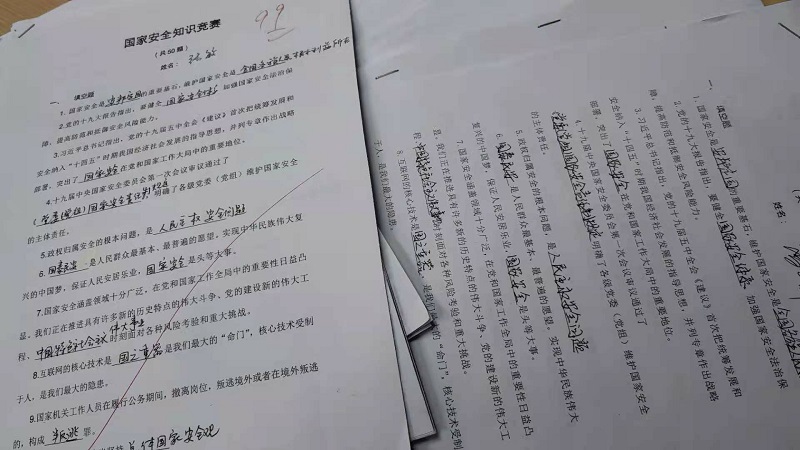 国家安全知识竞赛
99
(共50题)
姓名:
一、填空题
1. 国家安全是安邦定国的重要基石,维护国家安全是全国各族人民根本利益所在
2.党的十九大报告指出,要健全国家安全体系 加强国家安全法治保
障,提高防范和抵御安全风险能力。
3.习近平总书记指出,党的十九届五中全会《建议》首次把统筹发展和
安全纳入“十四五”时期我国经济社会发展的指导思想,并列专章作出战略
部署,突出了国家安全在党和国家工作大局中的重要地位。
4.十九届中央国家安全委员会第一次会议审议通过了
《党委(党组)国家安全责任制规定》明确了各级党委(党组)维护国家安全
的主体责任。
5.政权归属安全的根本问题,是人民民主政权安全问题
6.国泰民安是人民群众最基本、最普遍的愿望。实现中华民族伟大复
兴的中国梦,保证人民安居乐业,国家安全是头等大事。
7.国家安全涵盖领域十分广泛,在党和国家工作全局中的重要性日益凸
显。我们正在推进具有许多新的历史特点的伟大斗争、党的建设新的伟大工
程、中国特色社会主义伟大事业时刻面对各种风险考验和重大挑战。
8.互联网的核心技术是国之重器是我们最大的“命门”,核心技术受制
于人,是我们最大的隐患。
9.国家机关工作人员在履行公务期间,擅离岗位,叛逃境外或者在境外叛逃
的,构成叛逃罪。
总体国家安全观
一、填空题
1、国家安全是安邦定国的重要基石,维护国家安全是
2、党的十九大报告指出,要健全国家安全体系 加强国家安全法治保
障,提高防范和抵御安全风险能力。
3.习近平总书记指出,党的十九届五中全会《建议》首次把统筹发展和
安全纳入“十四五”时期我国经济社会发展的指导思想,并列专章作出战略
部署,突出了国家安全在党和国家工作大局中的重要地位。
4.十九届中央国家安全委员会第一次会议审议通过了
明确了各级党委(党组)维护国家安全
的主体责任。
5.政权归属安全的根本问题,是人民民主政权安全问题
6.国泰民安是人民群众最基本、最普遍的愿望。实现中华民族伟大
复兴的中国梦,保证人民安居乐业,国家安全是头等大事。
7.国家安全涵盖领域十分广泛,在党和国家工作全局中的重要性日益凸
显。我们正在推进具有许多新的历史特点的伟大斗争、党的建设新的伟大工
程、中国特色社会主义伟大事业时刻面对各种风险考验和重大挑战。
8.互联网的核心技术是国之重器是我们最大的“命门”,核心技术受制
于人,是我们最大的隐患。